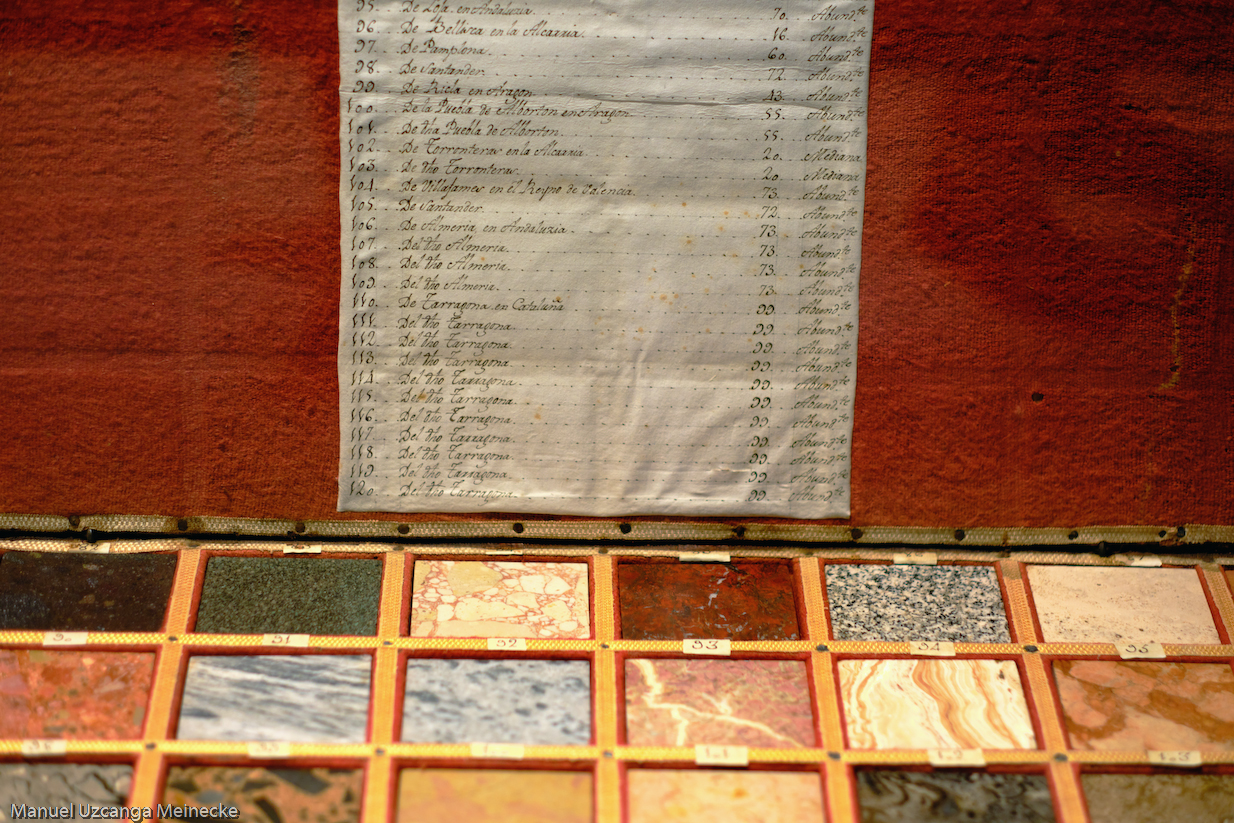 95. De Loja en Andaluzia. 70. Abund.te
96. De Bellisca en la Alcarria. 16. Abund.te
97. De Pamplona. 60. Abund.te
98. De Santander. 72. Abund.te
99. De Ricla en Aragon. 43. Abund.te
100. De la Puebla de Alborton en Aragon. 55. Abund.te
101. De dha Puebla de Alborton. 55. Abund.te
102. De Torronteras en la Alcarria. 20. Mediana
103. De dho Torronteras. 20. Mediana
104. De Villafames en el Reyno de Valencia. 73. Abund.te
105. De Santander. 72. Abund.te
106. De Almeria en Andaluzia. 73. Abund.te
107. Del dho Almeria. 73. Abund.te
108. Del dho Almeria. 73. Abund.te
109. Del dho Almeria. 73. Abund.te
110. De Tarragona en Cataluña 99. Abund.te
111. Del dho Tarragona. 99. Abund.te
112. Del dho Tarragona. 99. Abund.te
113. Del dho Tarragona. 99. Abund.te
114. Del dho Tarragona. 99. Abund.te
115. Del dho Tarragona. 99. Abund.te
116. Del dho Tarragona. 99. Abund.te
117. Del dho Tarragona. 99. Abund.te
118. Del dho Tarragona. 99. Abund.te
119. Del dho Tarragona. 99. Abund.te
120. Del dho Tarragona. 99. Abund.te
90 91 92 93 94 95
Manuel Uzcanga Meinecke